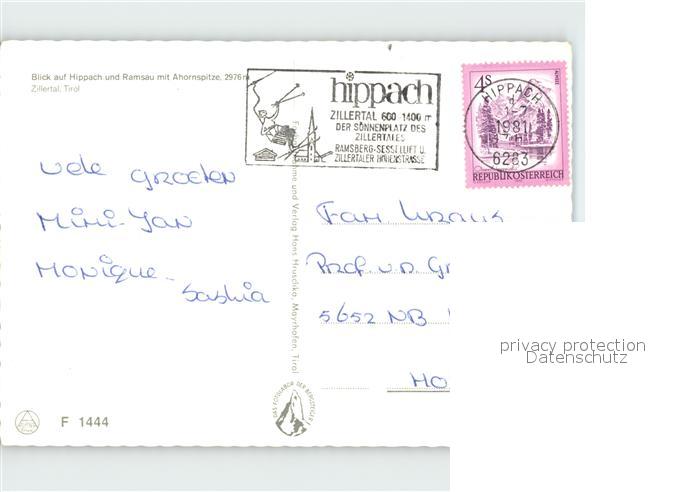 Blick auf Hippach und Ramsau mit Ahornspitze, 2976 m
Zillertal, Tirol
hippach
ZILLERTAL 600-1400 m
DER SONNENPLATZ DES
ZILLERTALES
RAMSBERG-SESSELLIFT U.
ZILLERTALER HÖHENSTRASSE
4S
HIPPACH
1981
6283
REPUBLIK ÖSTERREICH
Vele groeten
Mimi-Jan
Monique-
Saskia
Fam.
Prof. v.d. Gr
5652 NB
HO
me und Verlag Hans Hruschka, Mayrhofen, Tirol
DAS FOTOLABOR DER BERGSTEIGER
F 1444
privacy protection
Datenschutz